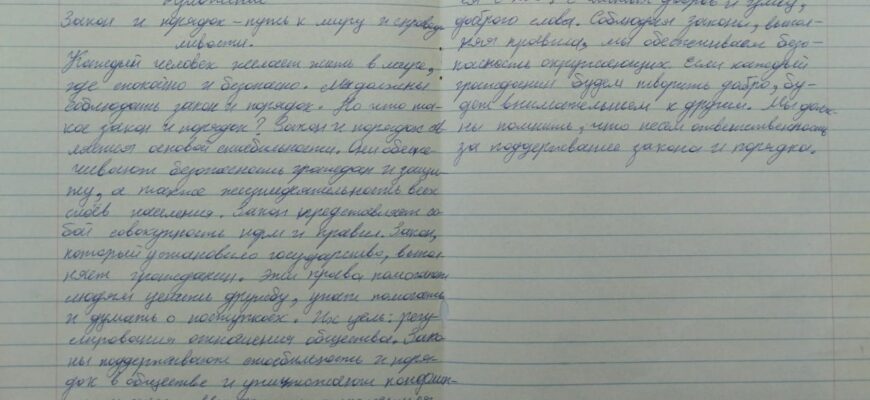 Закон и порядок – путь к миру и справед
ливости.
Каждый человек желает жить в мире,
где спокойно и безопасно. Мы должны
соблюдать закон и порядок. Но что та-
кое закон и порядок? Закон и порядок яв
ляется основой стабильности. Они обеспе
чивают безопасность граждан и защи
ту, а также жизнедеятельность всех
слоёв населения. Закон представляет со
бой совокупность норм и правил. Закон,
который установило государство, выпол
няет гражданин. Эти права помогают
людям ценить дружбу, помогать
и думать о поступках. Их цель: регу
лирования отношения общества. Зако
ны поддерживают стабильность и поря
док в обществе и уничтожают
доброго слова. Соблюдая законы, выпол-
няя правила, мы обеспечиваем безо-
пасность окружающих. Если каждый
гражданин будет творить добро, бу-
дет внимательнее к другим. Мы долж-
ны помнить, что несем ответственность
за поддержание закона и порядка.